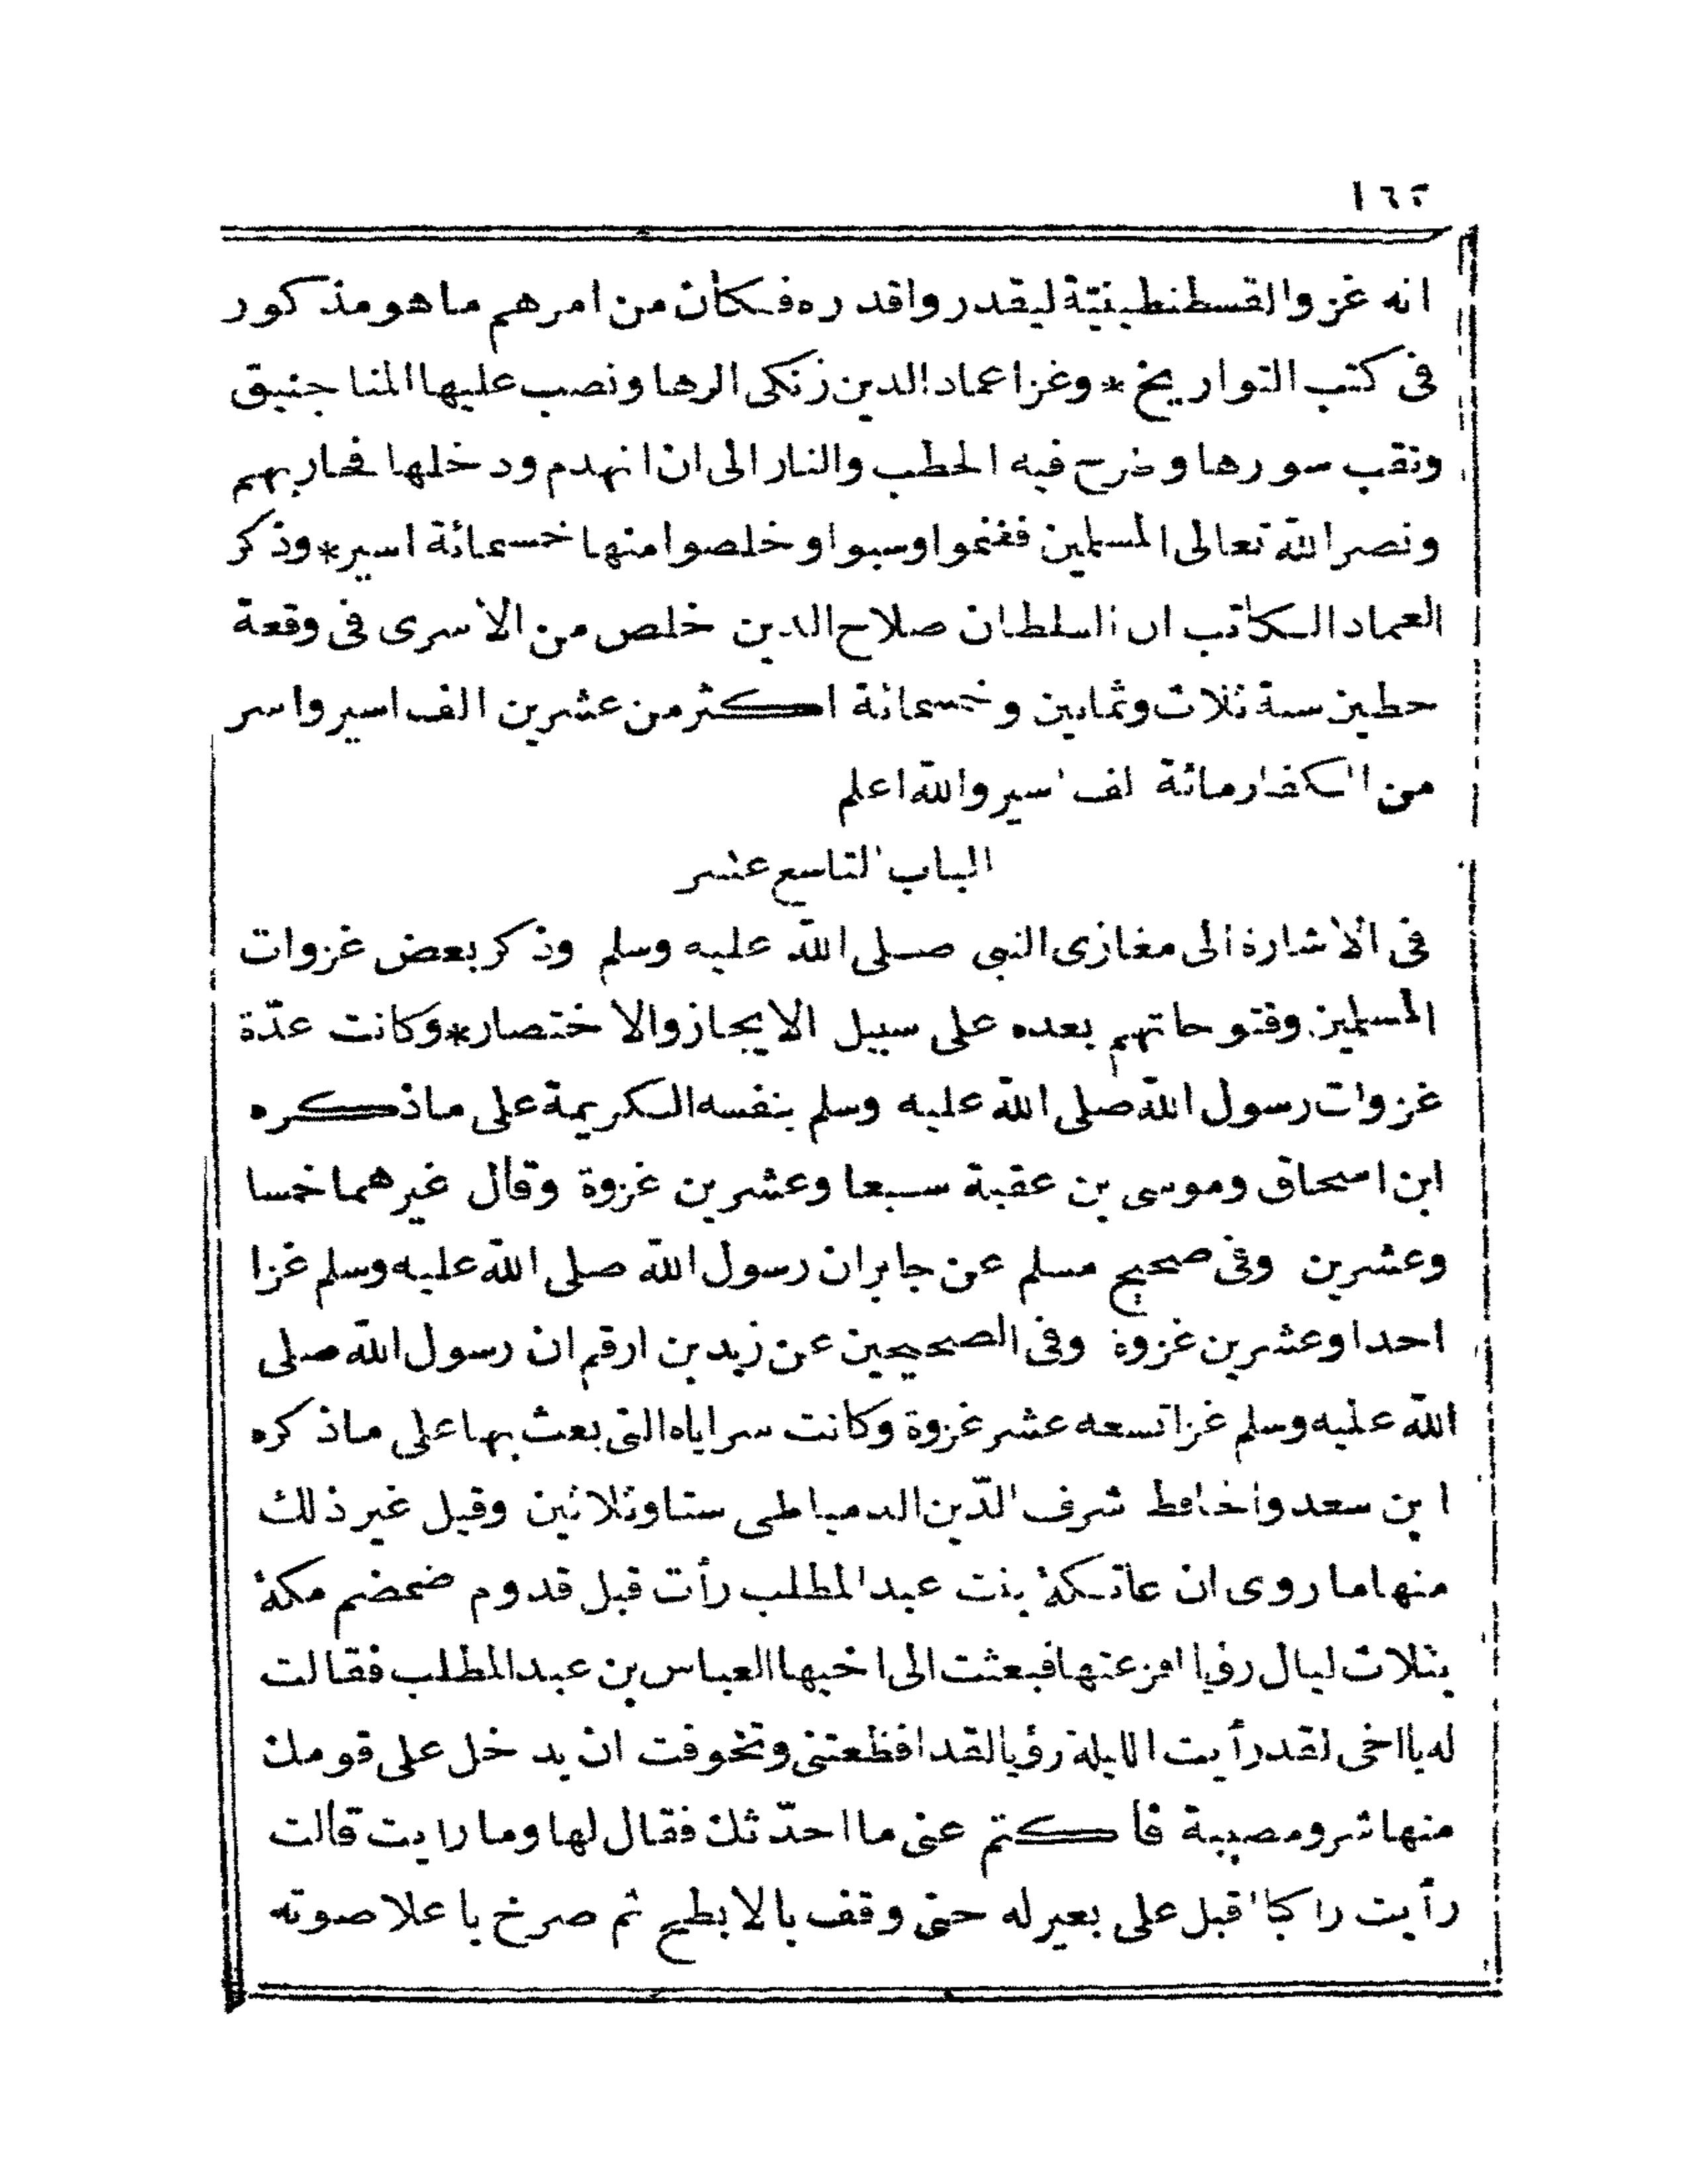 ١٦٢
انه غزو القسطنطينيّة ليقدر واقدره فكان من امرهم ما هو مذكور
فى كتب التواريخ * وغزا عماد الدين زنكى الرها ونصب عليها المناجنيق
ونقب سورها وطرح فيه الحطب والنار الى ان انهدم ودخلها فحاربهم
ونصر الله تعالى المسلمين فغنموا وسبوا وخلصوا منها خمسمائة اسير * وذكر
العماد الكاتب ان السلطان صلاح الدين خلص من الاسرى فى وقعة
حطين سنة ثلاث وثمانين وخمسمائة اكثر من عشرين الف اسير واسر
من الكفار مائة الف اسير والله اعلم
الباب التاسع عشر
فى الاشارة الى مغازى النبى صلى الله عليه وسلم وذكر بعض غزوات
المسلمين وفتوحاتهم بعده على سبيل الايجاز والاختصار * وكانت عدّة
غزوات رسول الله صلى الله عليه وسلم بنفسه الكريمة على ما ذكره
ابن اسحاق وموسى بن عقبة سبعا وعشرين غزوة وقال غيرهما خمسا
وعشرين وفى صحيح مسلم عن جابر ان رسول الله صلى الله عليه وسلم غزا
احدا وعشرين غزوة وفى الصحيحين عن زيد بن ارقم ان رسول الله صلى
الله عليه وسلم غزا تسعه عشر غزوة وكانت سراياه التى بعث بها على ما ذكره
ابن سعد والحافظ شرف الدّين الدمياطى ستا وثلاثين وقيل غير ذلك
منها ما روى ان عاتكة بنت عبد المطلب رأت قبل قدوم ضمضم مكة
بثلاث ليال رؤيا افزعتها فبعثت الى اخيها العباس بن عبد المطلب فقالت
له يا اخى لقد رأيت الليلة رؤيا لقد افظعتنى وتخوفت ان يدخل على قومك
منها شر ومصيبة فاكتم عنى ما احدّثك فقال لها وما رايت قالت
رأيت راكبا اقبل على بعير له حتى وقف بالابطح ثم صرخ باعلا صوته